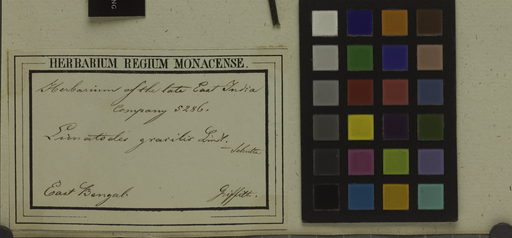 HERBARIUM REGIUM MONACENSE.
Herbarium of the late East India
Company 5286.
Lirnatodes gracilis Lindl.
East Bengal.
Griffith.